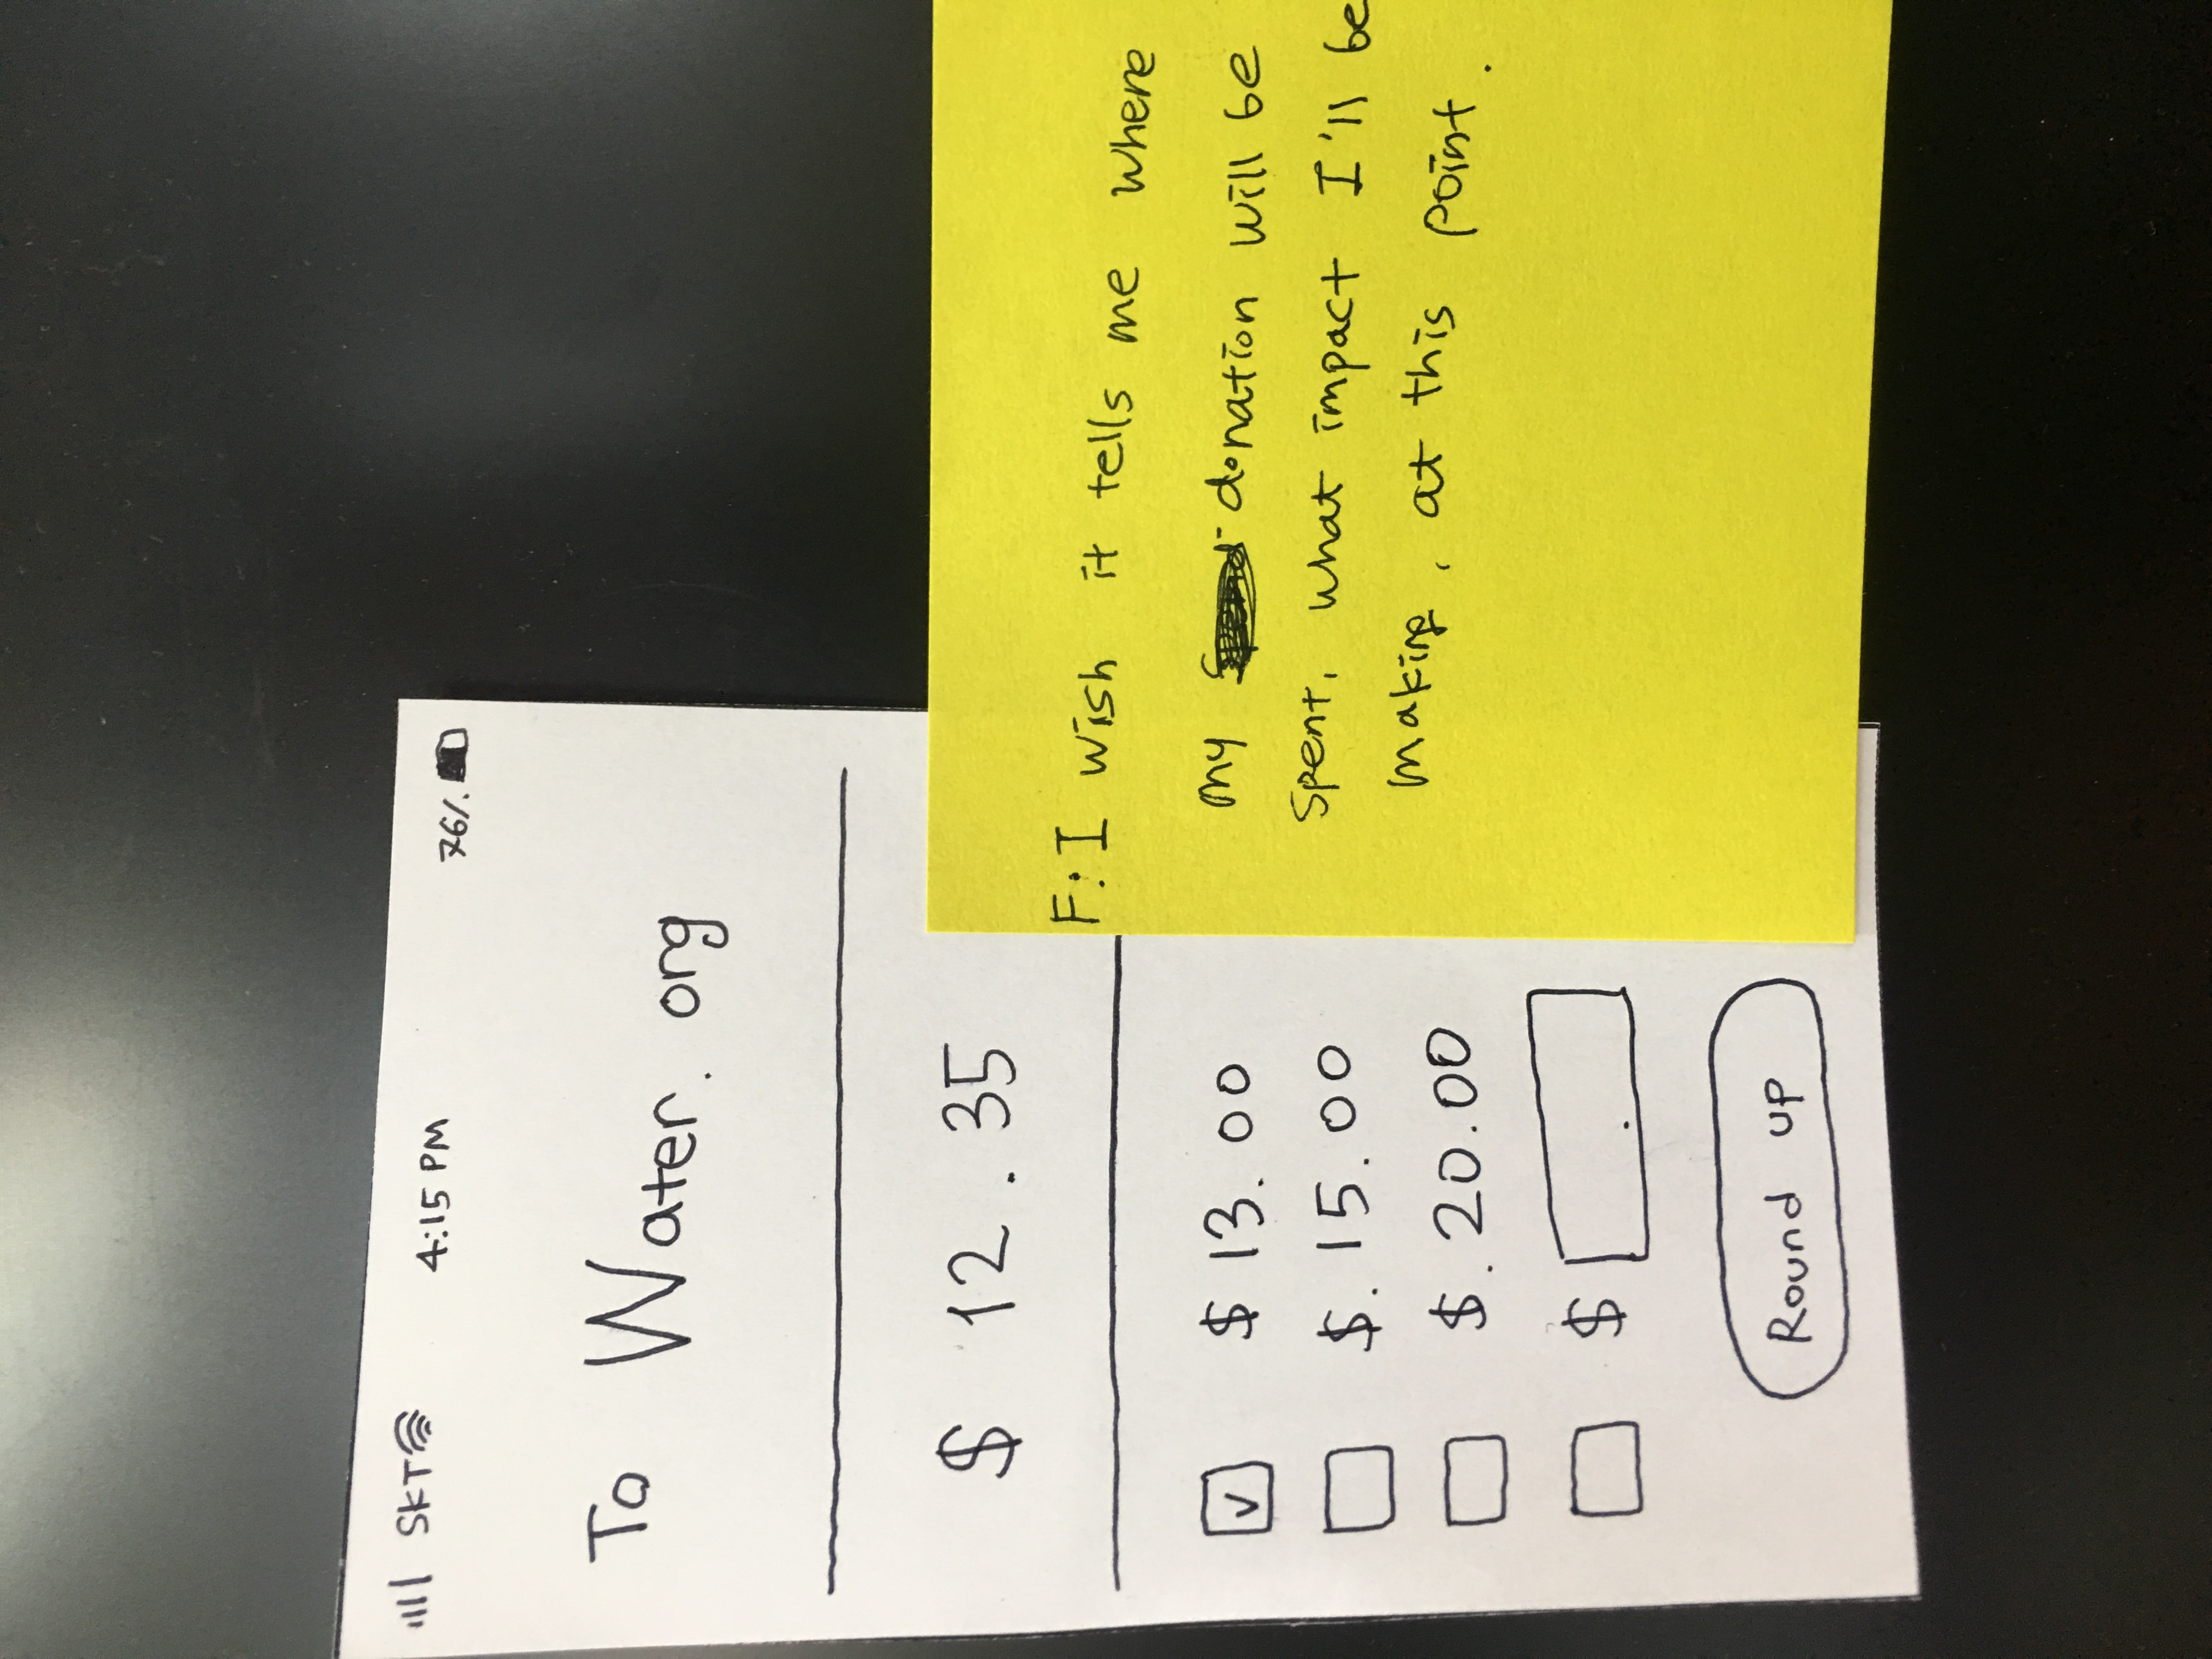 SKT 4:15 PM 76%
To Water.org
$ 12.35
$ 13.00
$. 15.00
$. 20.00
$ .
Round up
F: I wish it tells me where
my donation will be
spent, what impact I'll be
making, at this point.